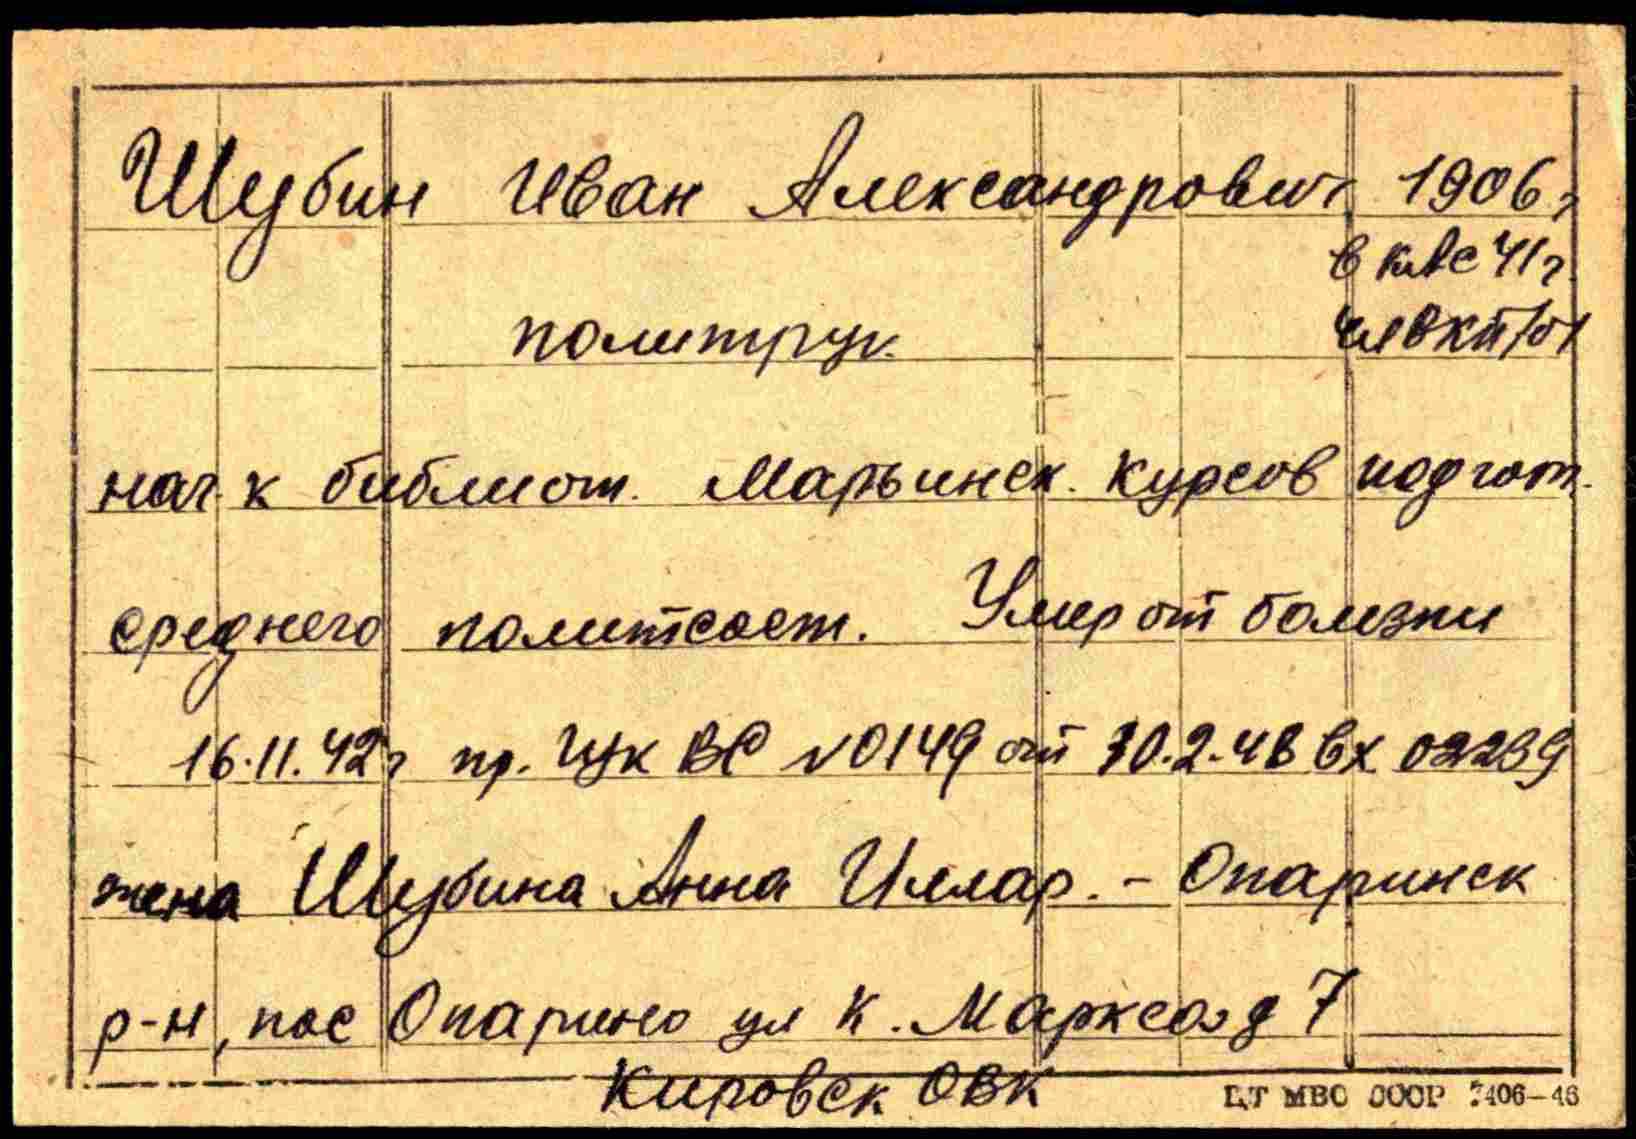 Шубин Иван Александрович 1906 г
в кАс 41 г.
политрук. чл ВКП/б/
нач-к библиот. Марьинск. Курсов подгот.
среднего политсост. Умер от болезни
16.11.42 г пр. ГУК ВС № 0149 от 10.2.48 вх 02239
жена Шубина Анна Иллар. - Опаринск
р-н, пос Опарино ул К. Маркса, д 7
Кировск ОВК
ЦТ МВС СССР 7406-46